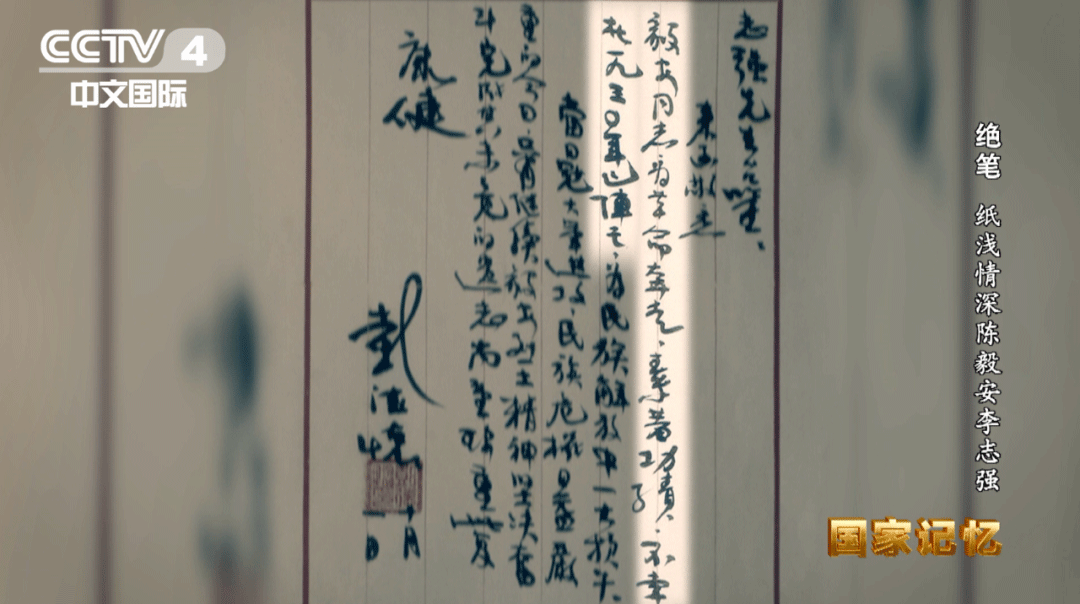 CCTV 4
中文国际
志强先生台鉴、
来函敬悉
毅安同志为革命奔走、素著功绩、不幸
在九三〇年已阵亡、为民族解放中一大损失、
当日寇大举进攻、民族危机日益严
重的今日、只有继续毅安烈士精神坚决奋
斗完成其未竟的遗志尚望珍重此复
康健
彭德怀
十月
一日
绝笔 纸浅情深陈毅安李志强
国家记忆